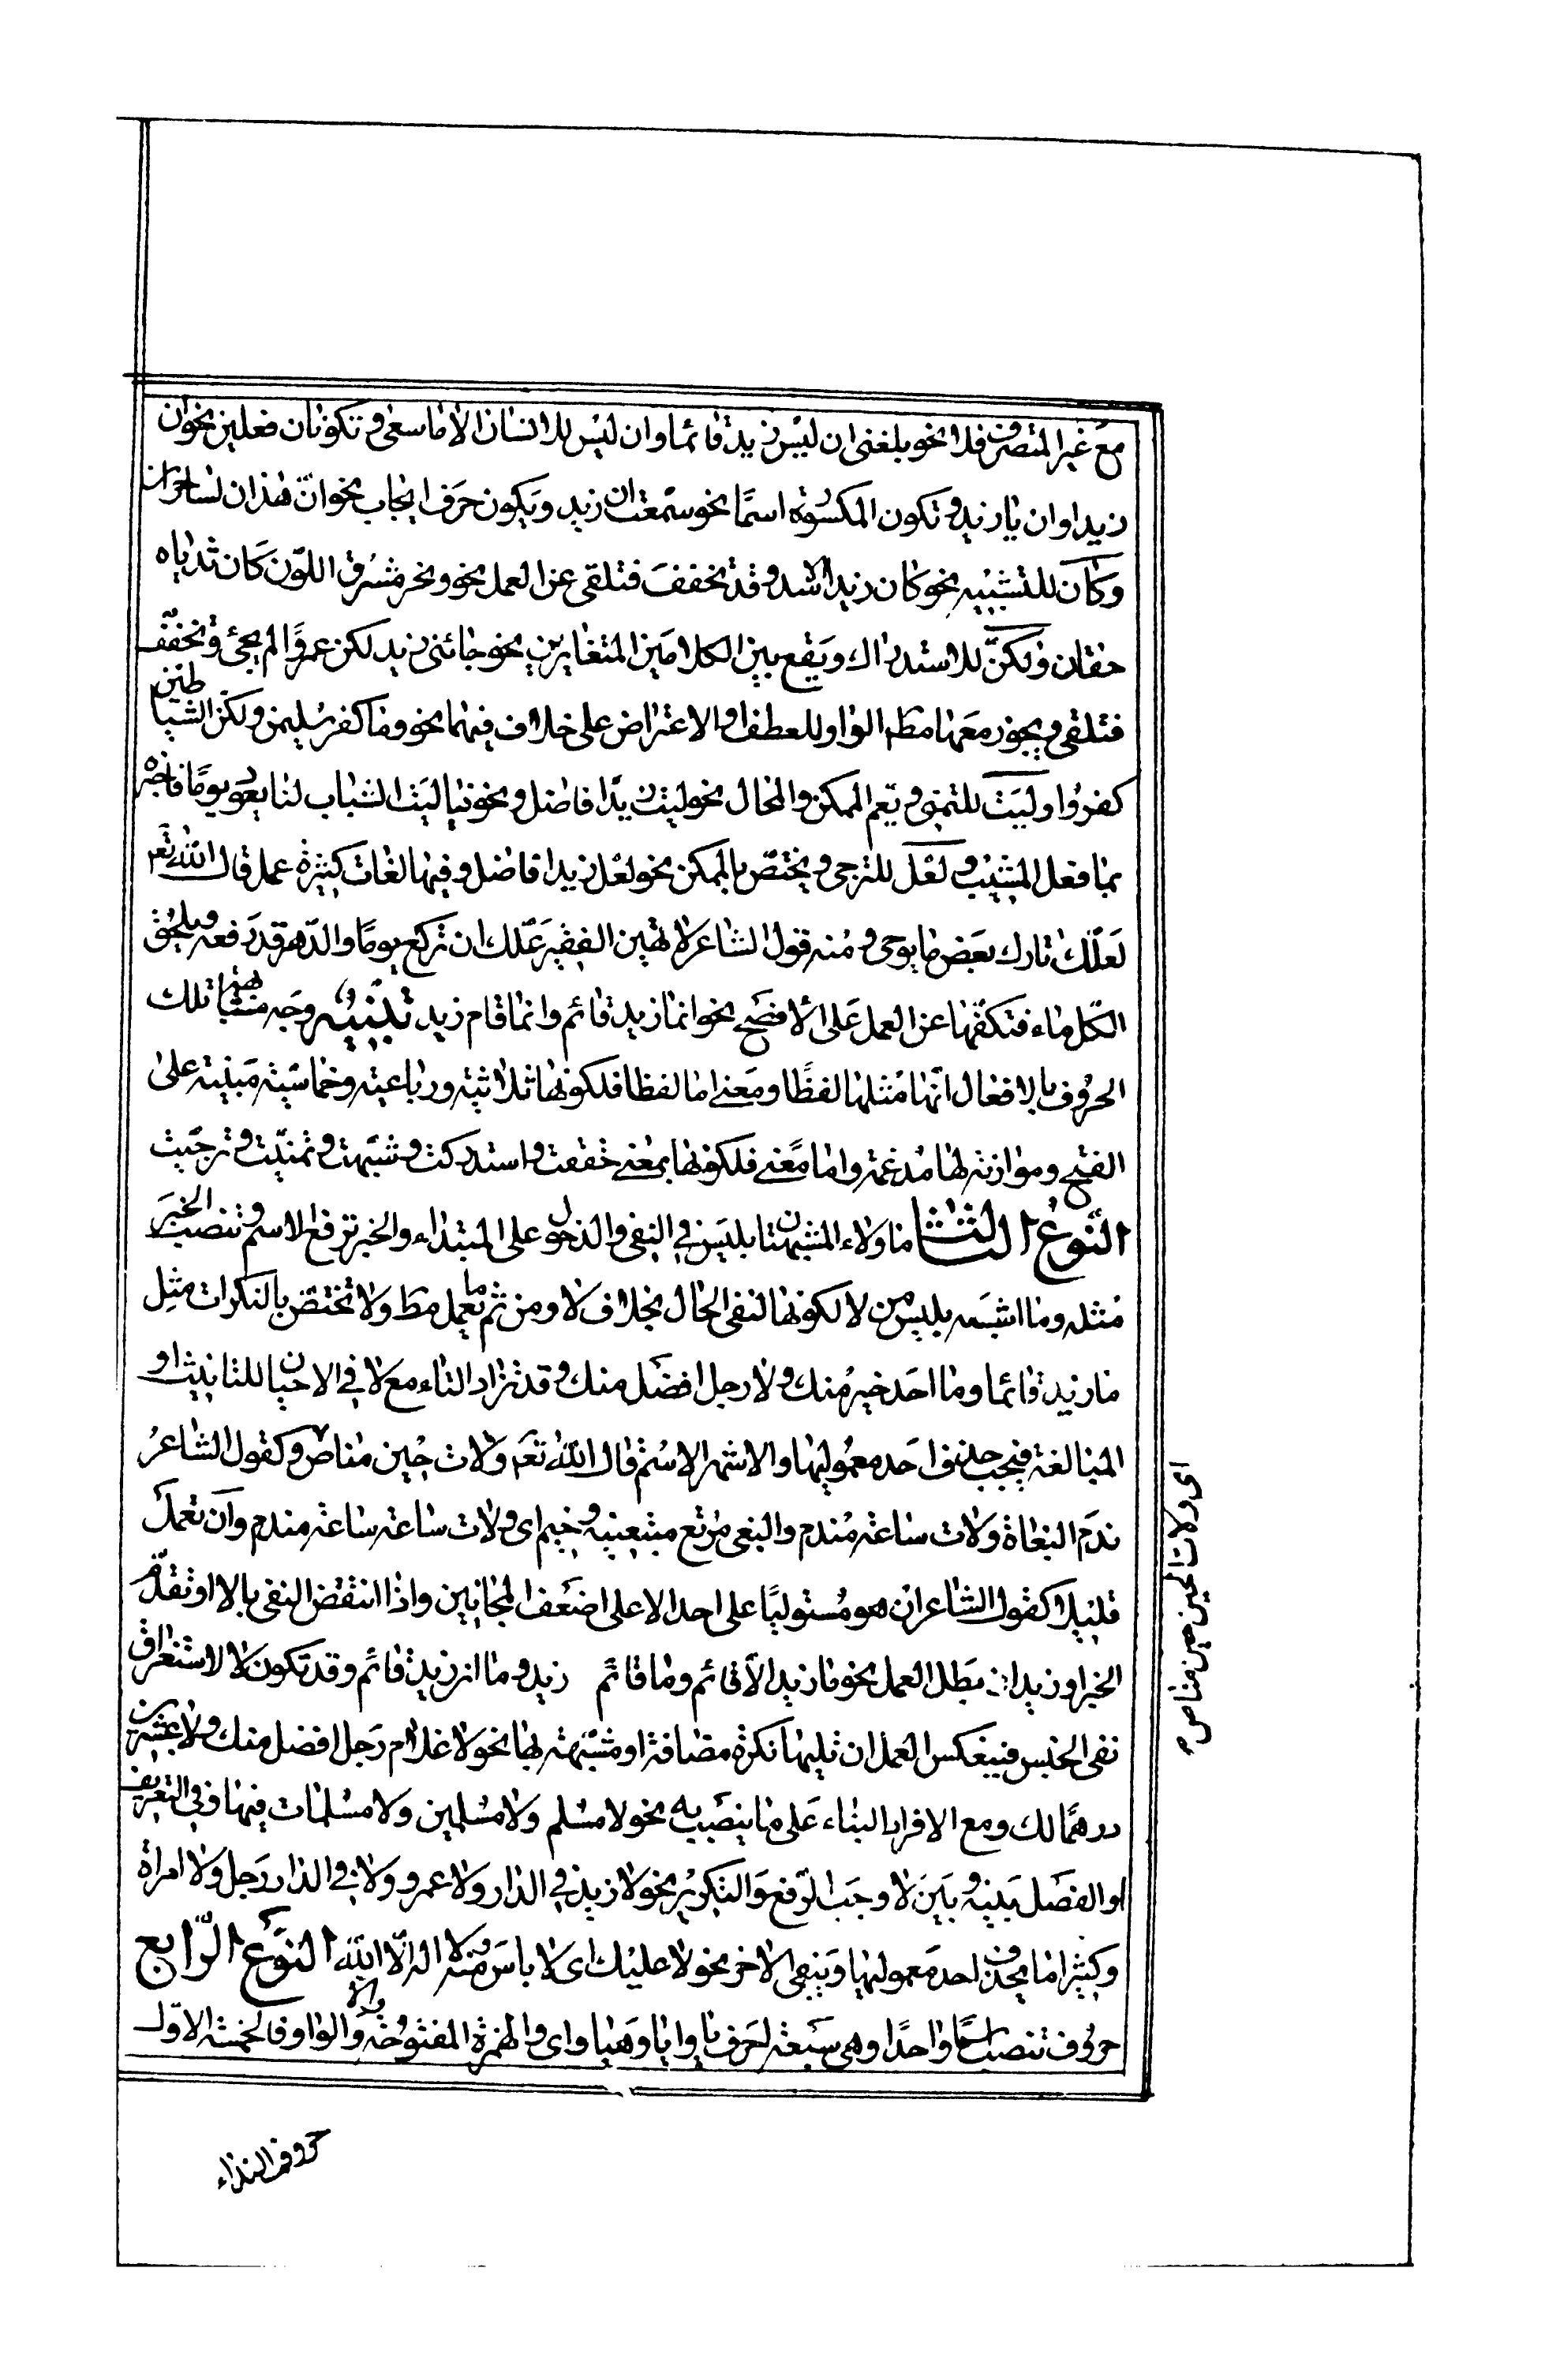 مع غير المتصرف فلا نحو بلغنى ان ليس زيد قائما وان ليس للانسان الا ما سعى و تكونان فعلين نحو ان
زيدا وان يا زيد و تكون المكسورة اسمًا نحو سمعت ان زيد ويكون حرف ايجاب نحو انّ هذان لساحران
وكأن للتشبيه نحو كان زيدا الاسد و قد تخفف فتلقى عن العمل نحو ونحر مشرق اللّون كان ثدياه
حقان ولكنّ للاستدراك ويقع بين الكلامين المتغايرين نحو جائنى زيد لكن عمروًا لم يجئ و تخفّف
فتلقى و يجوز معها مطم الواو للعطف او الاعتراض على خلاف فيهما نحو وما كفر سليمن ولكن الشياطين
كفروا وليت للتمنى و يعم الممكن والمحال نحو ليت زيدًا فاضل و نحو فيا ليت الشباب لنا يعود يومًا فاخبره
بما فعل المشيب و لعل للترجى و يختصّ بالممكن نحو لعل زيدا فاضل و فيها لغات كثيرة عمل قال الله تعم
لعلّك تارك بعض ما يوحى و منه قول الشاعر لا تهين الفقير علّك ان تركع يومًا والدّهر قد رفعه و يلحق
الكل ماء فتكفّها عن العمل على الأفصح نحو انما زيد قائم وانما قام زيد تنبيه وجه مشابهة تلك
الحروف بالافعال انّها مثلها لفظًا ومعنى اما لفظا فلكونها ثلاثية ورباعية وخماسية مبنية على
الفتح وموازنة لها مدغمة واما معنى فلكونها بمعنى حققت و استدركت و شبّهت و تمنّيت و ترجّيت
النّوع الثالث ما ولاء المشبهتان بليس فى النفى والدخول على المبتداء والخبر ترفع الاسم و تنصب الخبر
مثله وما اشبه بليس من لا لكونها لنفى الحال بخلاف لا ومن ثم تعمل ما مط ولا تختصّ بالنكرات مثل
ما زيد قائما وما احد خير منك و لا رجل افضل منك و قد تزاد التاء مع لا فى الاحيان للتانيث او
المبالغة فيجب حذف احد معموليها والاشهر الاسم قال الله تعم ولات حين مناص وكقول الشاعر
ندم البغاة ولات ساعة مندم والبغى مرتع مبتغيه وخيم اى ولات ساعة ساعة مندم وان تعمل
قليلا كقول الشاعر ان هو مستوليًا على احد الا على اضعف المجانين واذا انتقض النفى بالا او تقدّم
الخبر او زيد ان بطل العمل نحو ما زيد الاّ قائم وما قائم زيد و ما ان زيد قائم وقد تكون لا لاستغراق
نفى الجنس فينعكس العمل ان تليها نكرة مضافة او مشبّهة بها نحو لا غلام رجل افضل منك ولا عشرين
درهمًا لك ومع الافراد البناء على ما ينصب به نحو لا مسلم ولا مسلمين ولا مسلمات فيها و فى التعريف
او الفصل بينه و بين لا وجب الرّفع والتكرير نحو لا زيد فى الدار ولا عمرو ولا فى الدار رجل ولا امراة
وكثيرا ما يحذف احد معموليها ويبقى الاخر نحو لا عليك اى لا باس و منه لا اله الاّ الله النّوع الرّابع
حروف تنصب اسمًا واحدًا وهى سبعة احرف يا وايا وهيا واى والهمزة المفتوحة والّا والواو فالخمسة الاوّل
حروف النداء
اى ولات الحين حين مناص